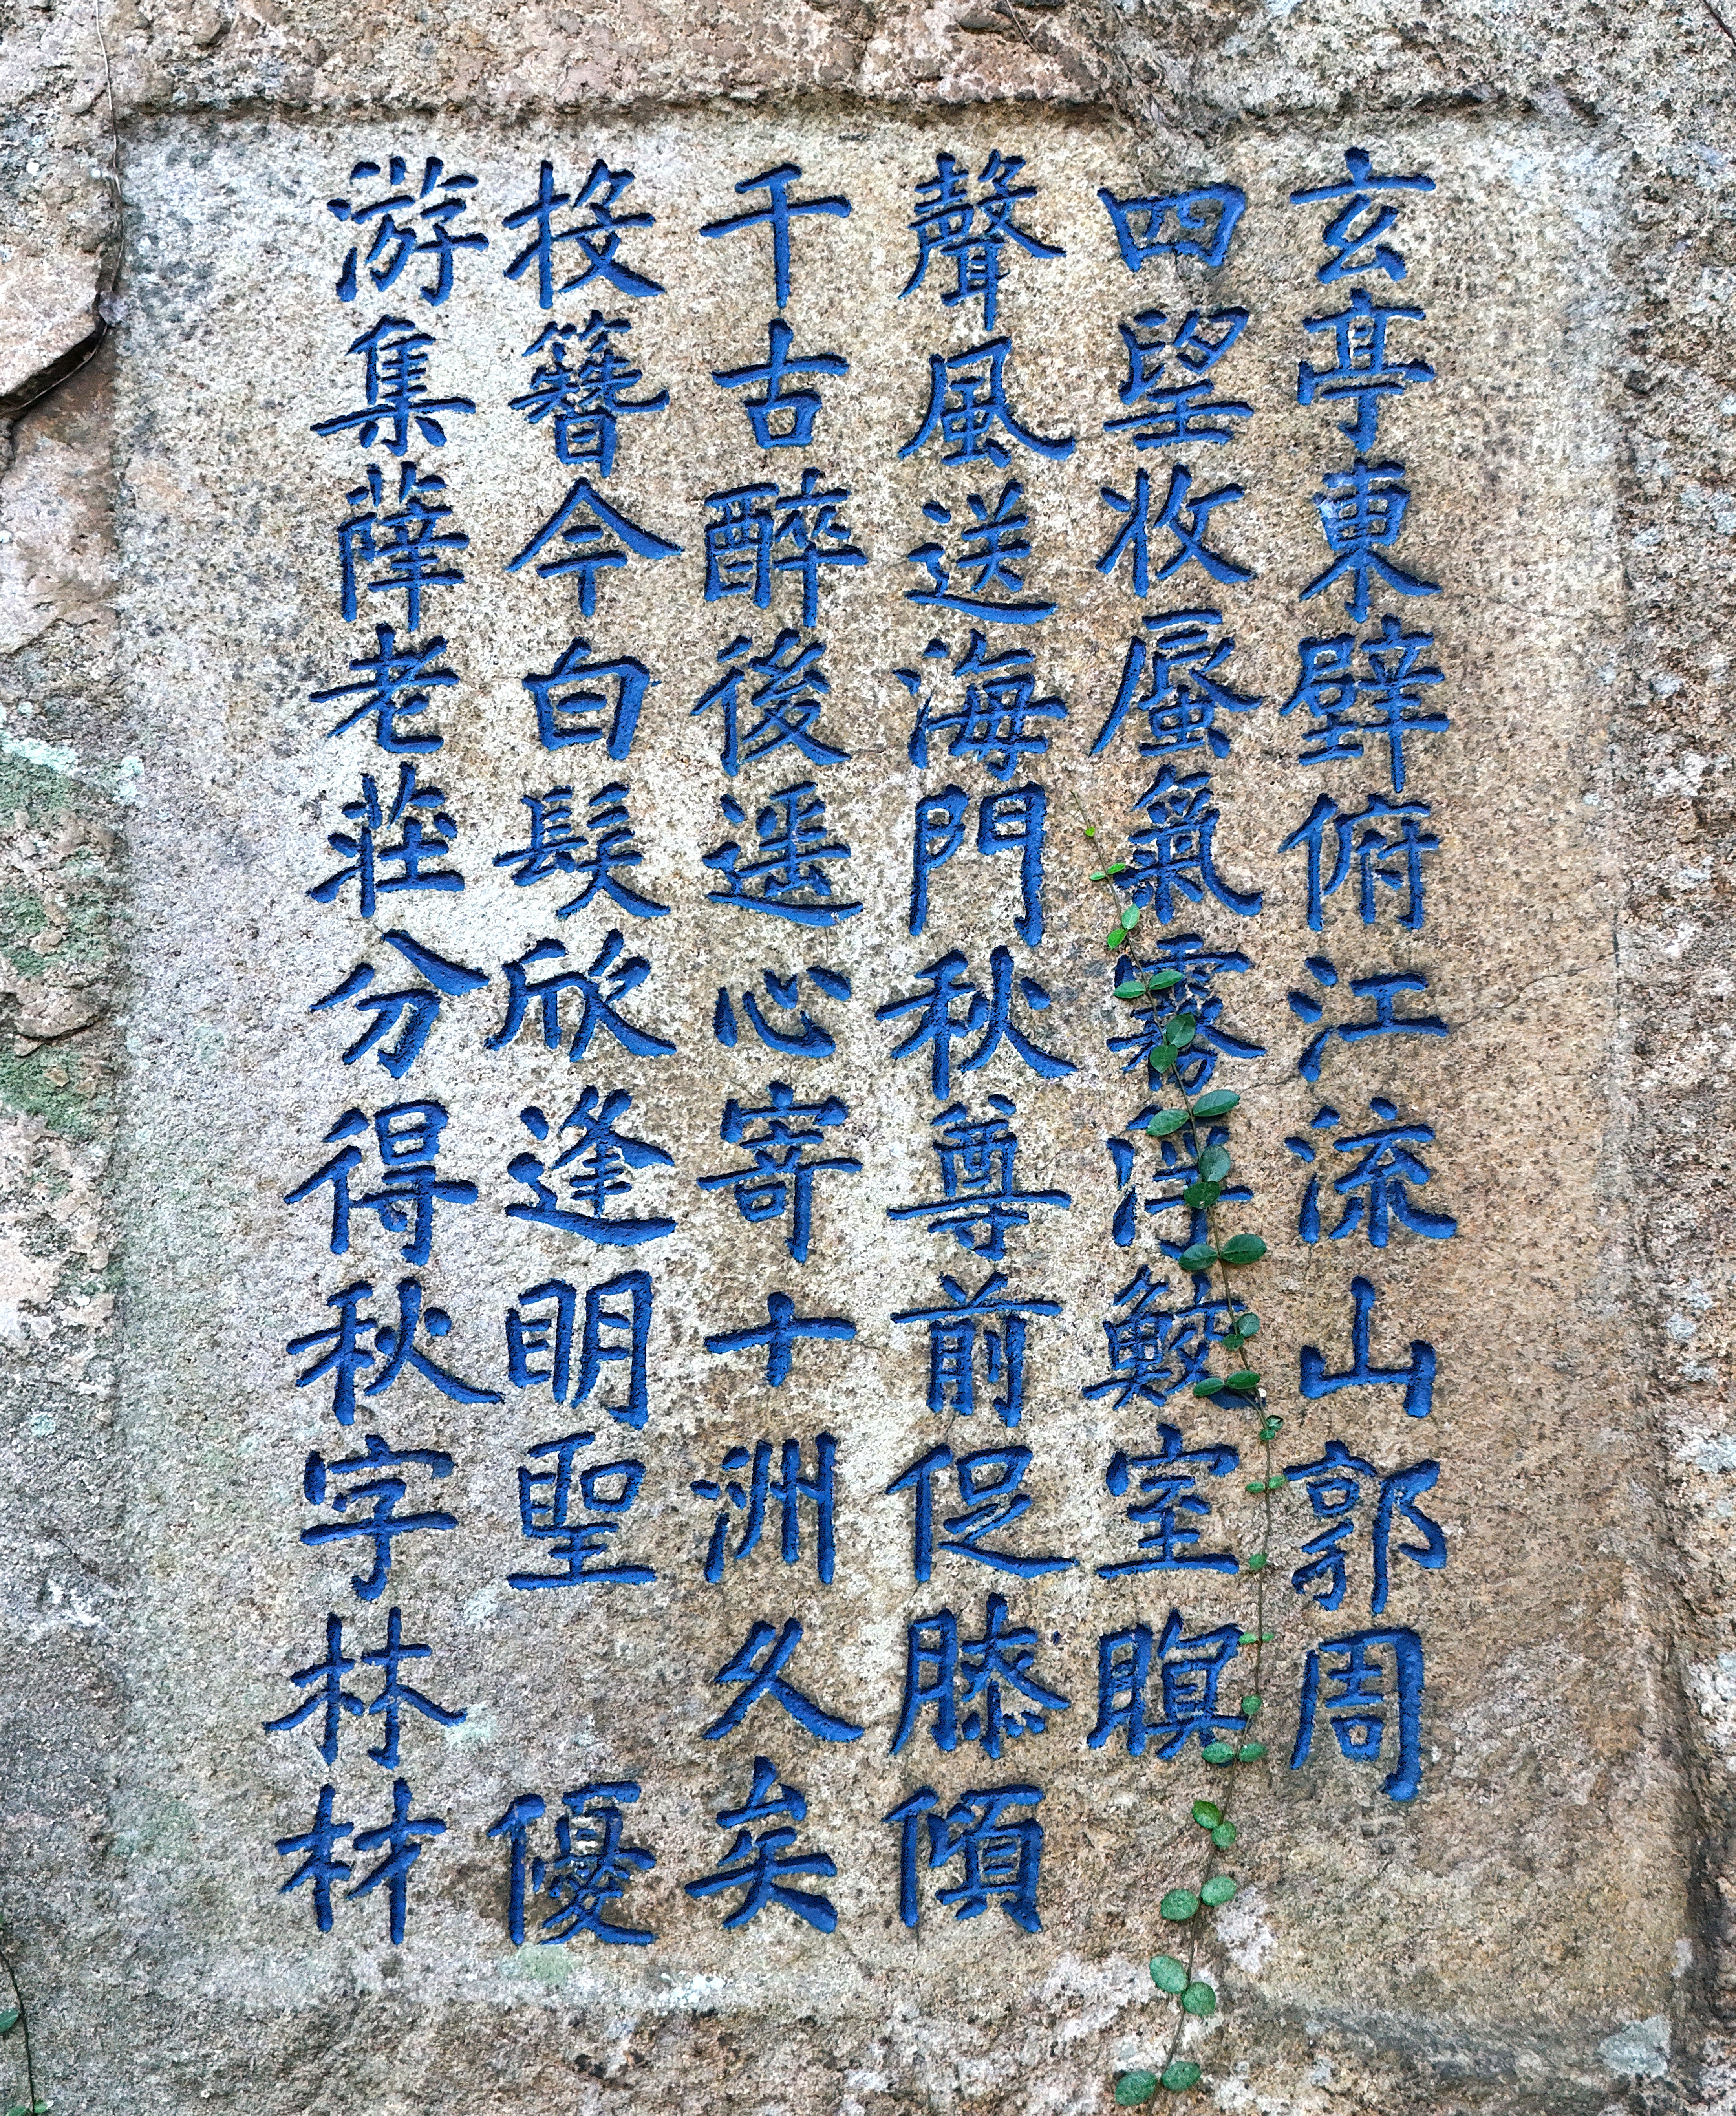 玄亭東壁俯江流山郭周
四望收蜃氣霧浮鮫室暝
聲風送海門秋尊前促膝傾
千古醉後遥心寄十洲久矣
投簪今白髮欣逢明聖優
游集薛老莊分得秋字林材